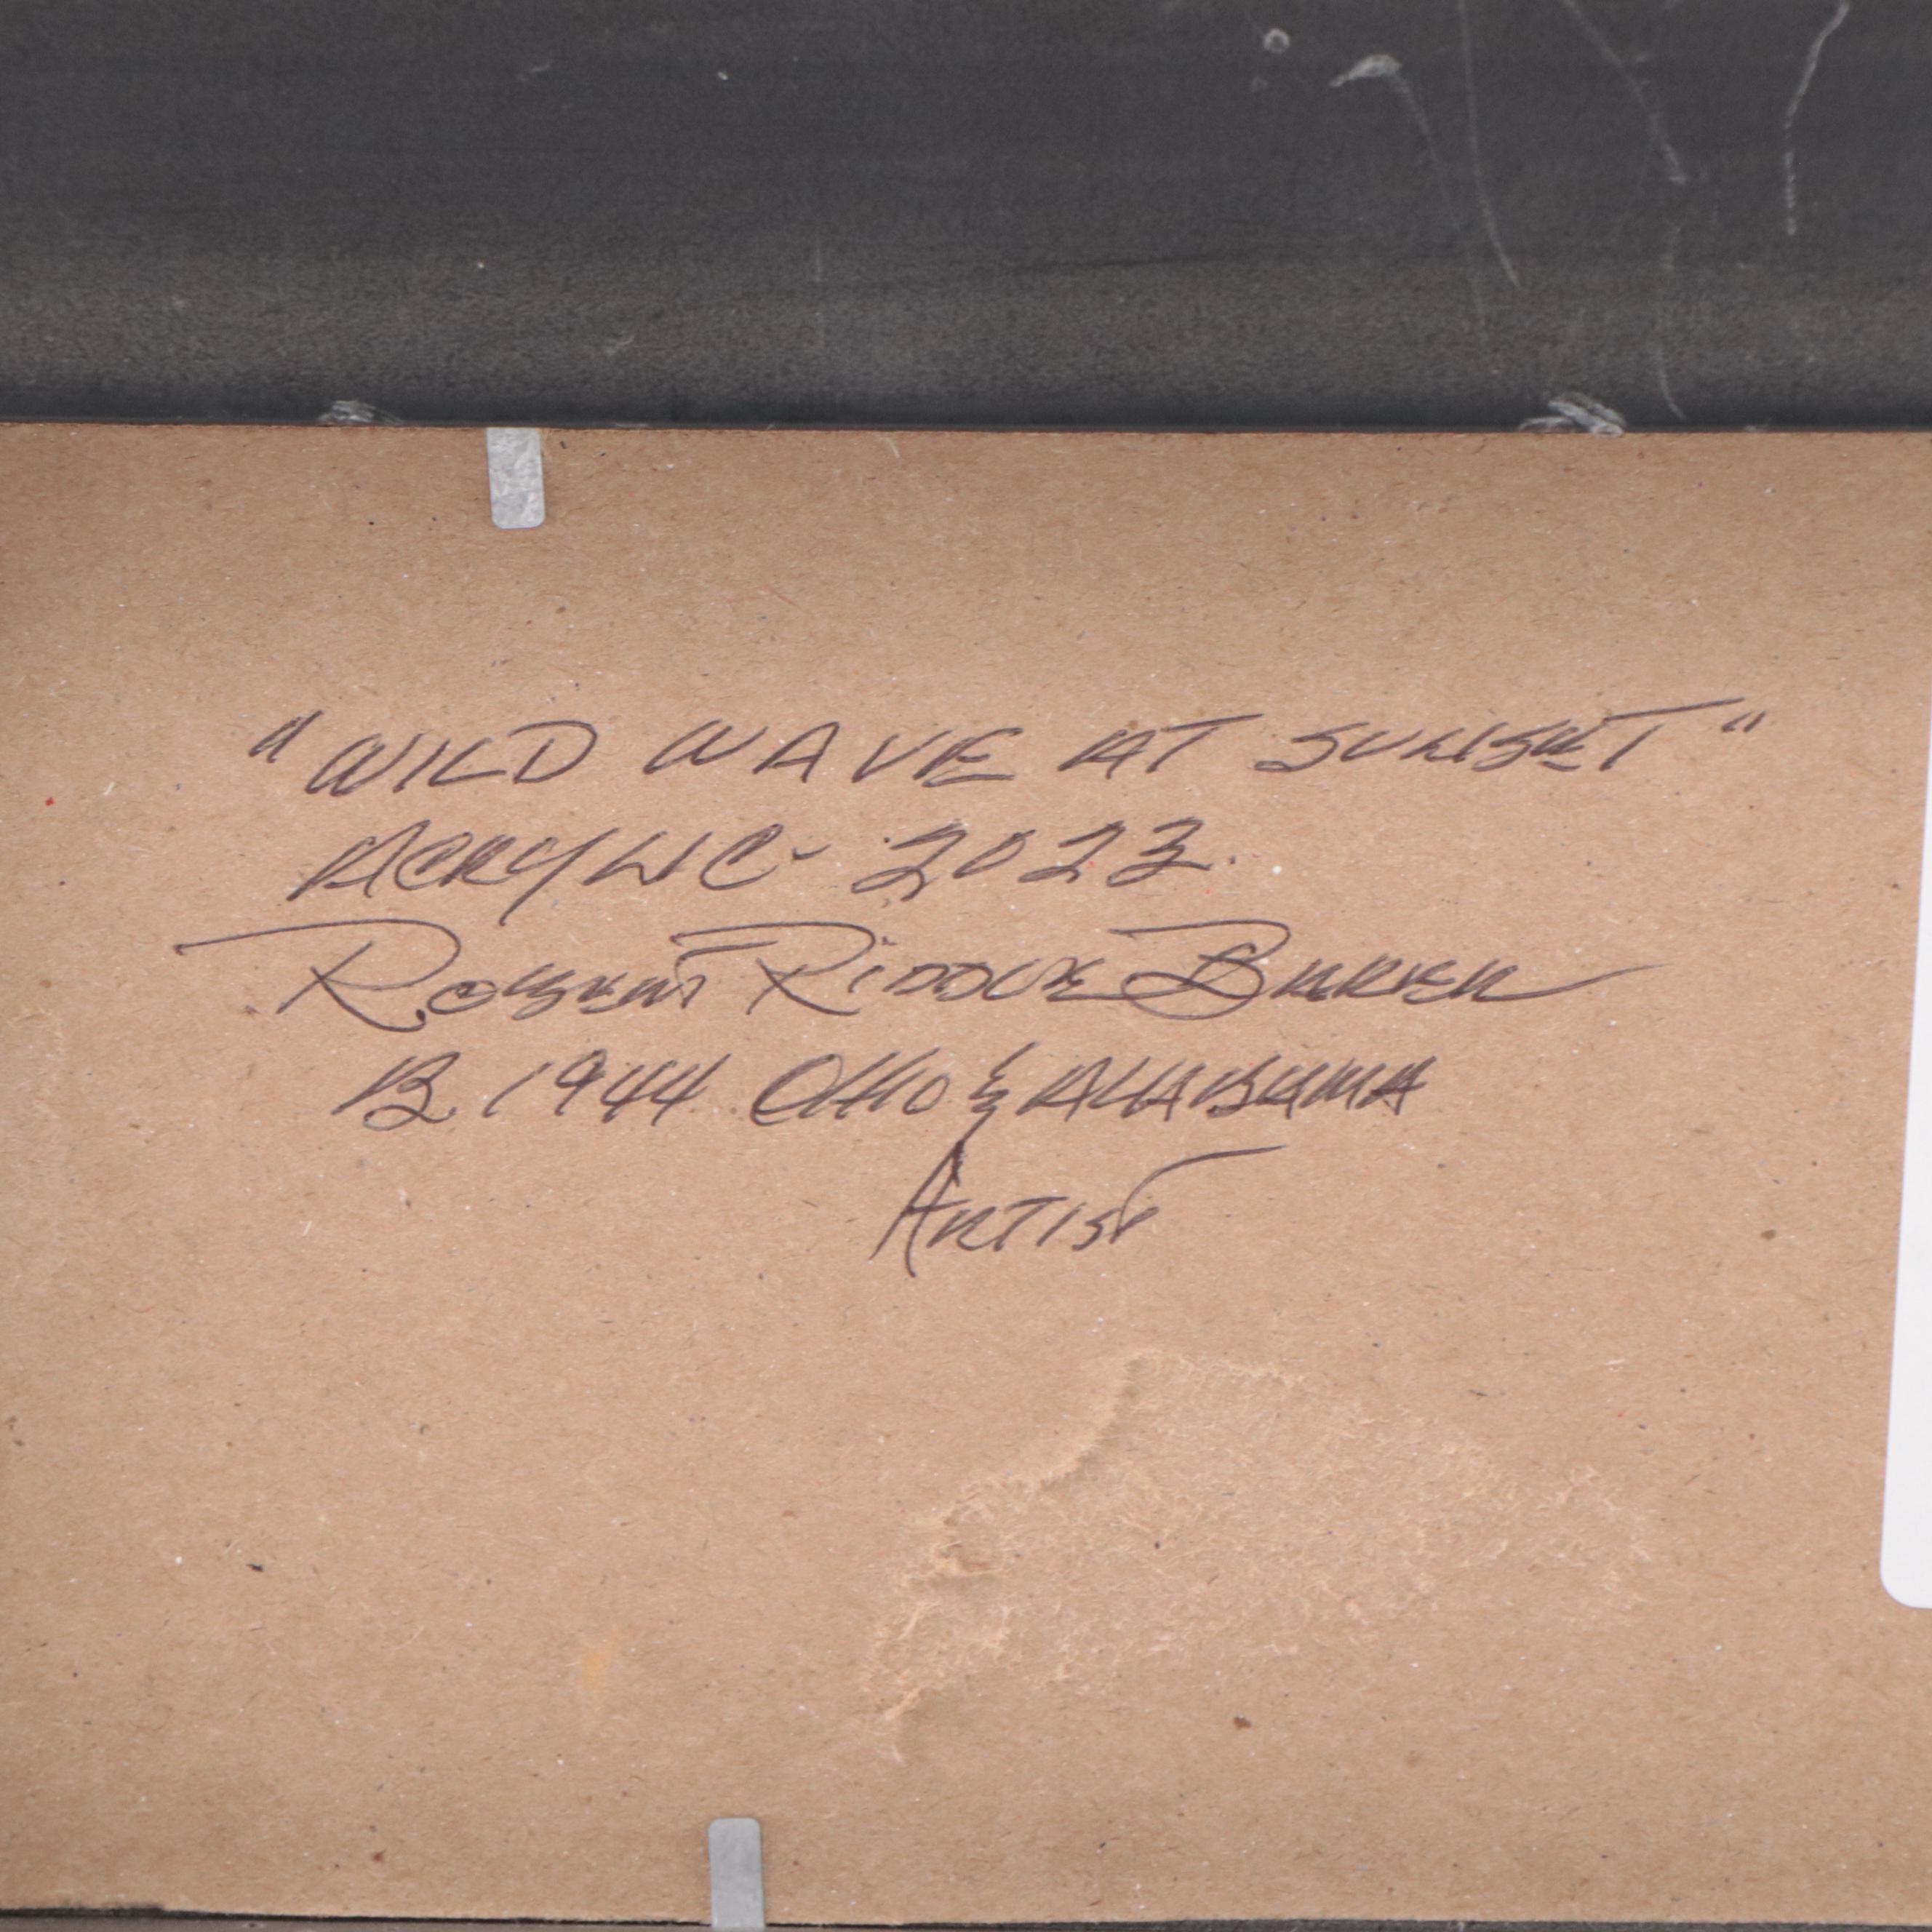 "WILD WAVE AT SUNSET"
ACRYLIC - 2023.
ROBERT RIDDLE BAKER
B. 1944 OHIO & ALABAMA
ARTIST